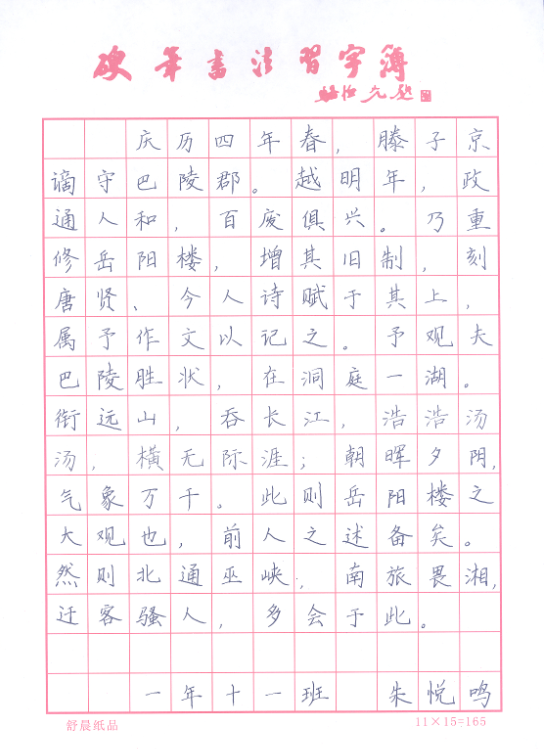 硬笔书法習字簿
庆历四年春，滕子京
谪守巴陵郡。越明年，政
通人和，百废俱兴。乃重
修岳阳楼，增其旧制，刻
唐贤、今人诗赋于其上，
属予作文以记之。予观夫
巴陵胜状，在洞庭一湖。
衔远山，吞长江，浩浩汤
汤，横无际涯；朝晖夕阴，
气象万千。此则岳阳楼之
大观也，前人之述备矣。
然则北通巫峡，南旅畏湘，
迁客骚人，多会于此。
一年十一班 朱悦鸣
舒晨纸品 11×15=165